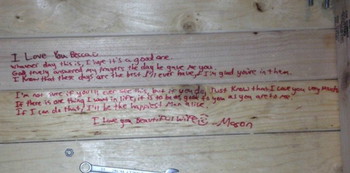 I Love You Because
Whatever day this is, I hope it's a good one.
God truly answered my prayers the day he gave me you.
I know that these days are the best I'll ever have, & I'm glad you're in them.
I'm not sure if you'll ever see this, but if you do, Just know that I Love you very much
If there is one thing I want in life, it is to be as good to you as you are to me.
If I can do that, I'll be the happiest Man alive.
I Love you Beautiful Wife -Mason